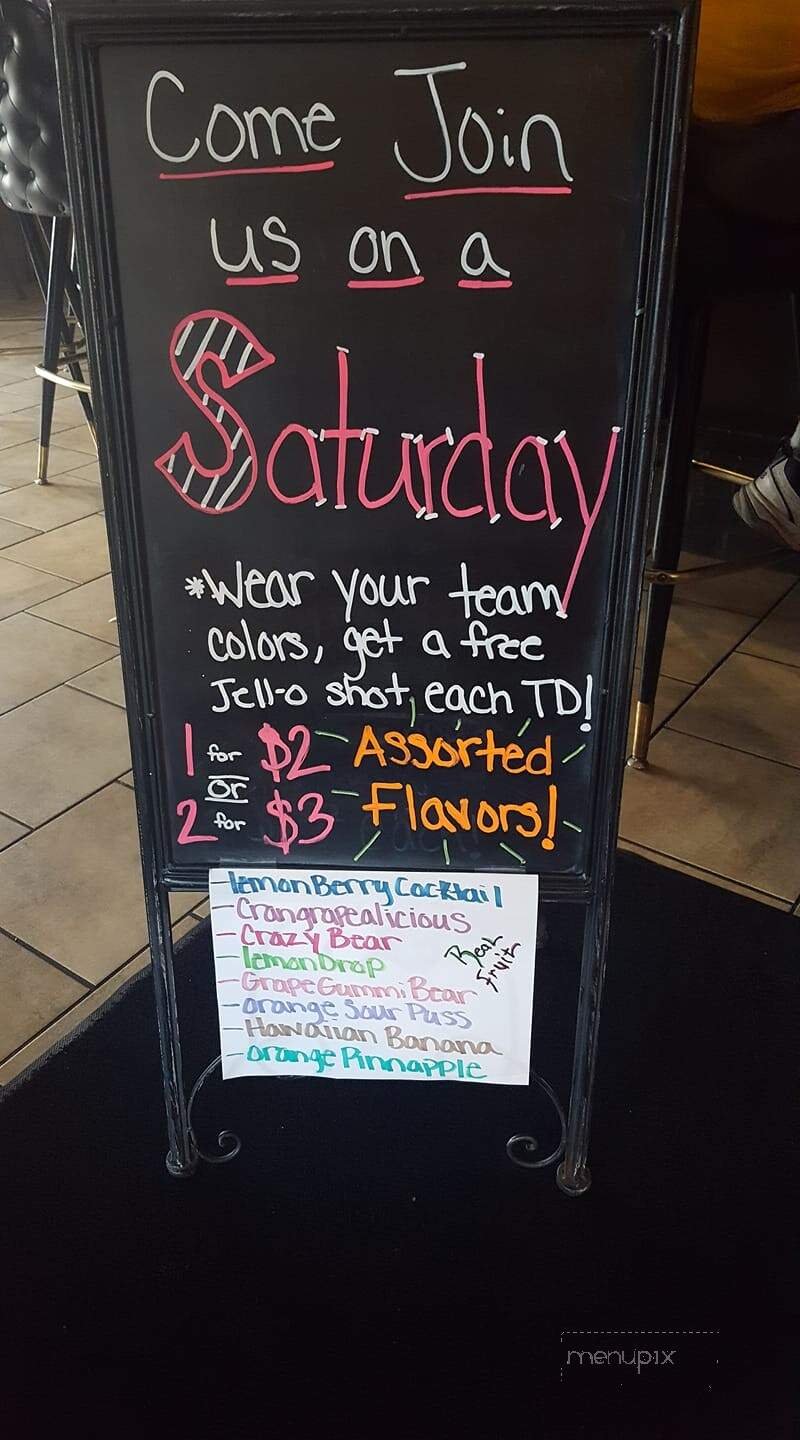 Come Join
us on a
Saturday
*Wear your team
colors, get a free
Jell-o shot each TD!
1 for $2 Assorted
or
2 for $3 Flavors!
-lemon Berry Cocktail
-Crangrapealicious
-Crazy Bear
-lemon Drop
Real
fruit
-Grape Gummi Bear
-orange Sour Puss
-Hawaiian Banana
-orange Pinnapple
menupix